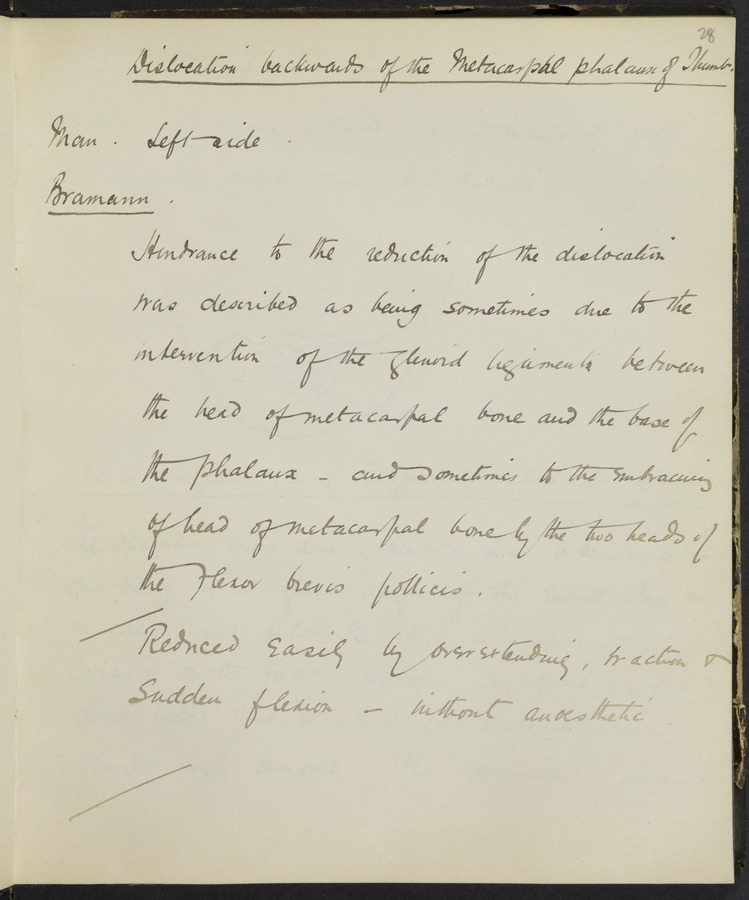 28
Dislocation backwards of the Metacarpal phalanx of Thumb.
Man. Left side.
Bramann.
Hindrance to the reduction of the dislocation
was described as being sometimes due to the
intervention of the glenoid ligaments between
the head of metacarpal bone and the base of
the phalanx - and sometimes to the embracing
of head of metacarpal bone by the two heads of
the Flexor brevis pollicis.
Reduced easily by overextending, traction &
Sudden flexion - without anoesthetic